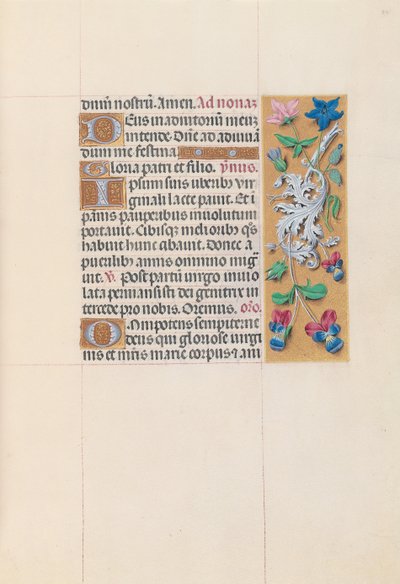 dnm̄ nostrū. Amen. Ad nonaz
Deus in adiutoriū meuz
intende. Dn̄e ad adiuuā
dum me festina.
Gloria patri et filio. ymnus.
Ipsum suis uberibus vir
ginali lacte pauit. Et i
panis pauperibus inuolutum
portauit. Cibisqz melioribus
habuit hunc cibauit. Donec a
puerilibus annis omnino mig
uit. V. Post partū uirgo inuio
lata permansisti dei genitrix in
tercede pro nobis. Oremus. oro.
Omnipotens sempiterne
deus qui gloriose uirgi
nis et mr̄is marie corpus & am